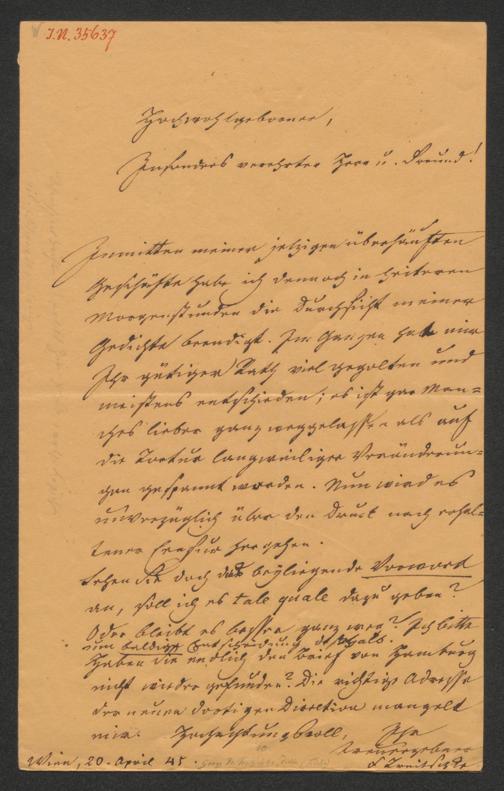 I.N. 35637
Hochwohlgeborner,
Insonders verehrter Herr u. Freund!
Inmitten meiner jetzigen überhäuften
Geschäfte habe ich dennoch in heiteren
Morgenstunden die Durchsicht meiner
Gedichte beendigt. Im Ganzen hat mir
Ihr gütiger Rath viel gegolten und
meistens entschieden; es ist gar Man-
ches lieber ganz weggelassen als auf
die Tortur langweiliger Veränderun-
gen gespannt worden. Nun wird es
unverzüglich über den Druck nach erhal-
tener Censur hergehen.
Sehen Sie doch das beyliegende Vorwort
an, soll ich es tale quale dazu geben?
Oder bleibt es besser ganz weg? Ich bitte
um baldige Entscheidung
Haben Sie endlich den Brief von Hamburg
nicht wieder gefunden? Die richtige Adresse
der neuen dortigen Direktion mangelt
mir. Hochachtungsvoll, Ihr
treuergebner
Wien, 20. April 45. F Treitschke